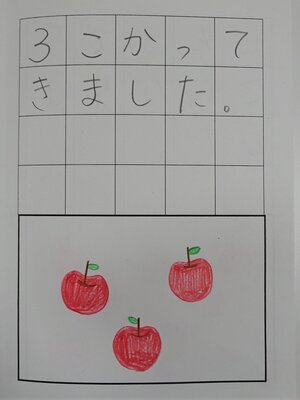 3こかって
きました。